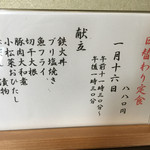 日替わり定食
八八〇円
一月十六日
午前十一時三〇分
午後一時三〇分
献立
鉄火丼
ブリ塩焼き
魚フライ
豚肉大和煮
切干大根
小松菜おひたし
漬物